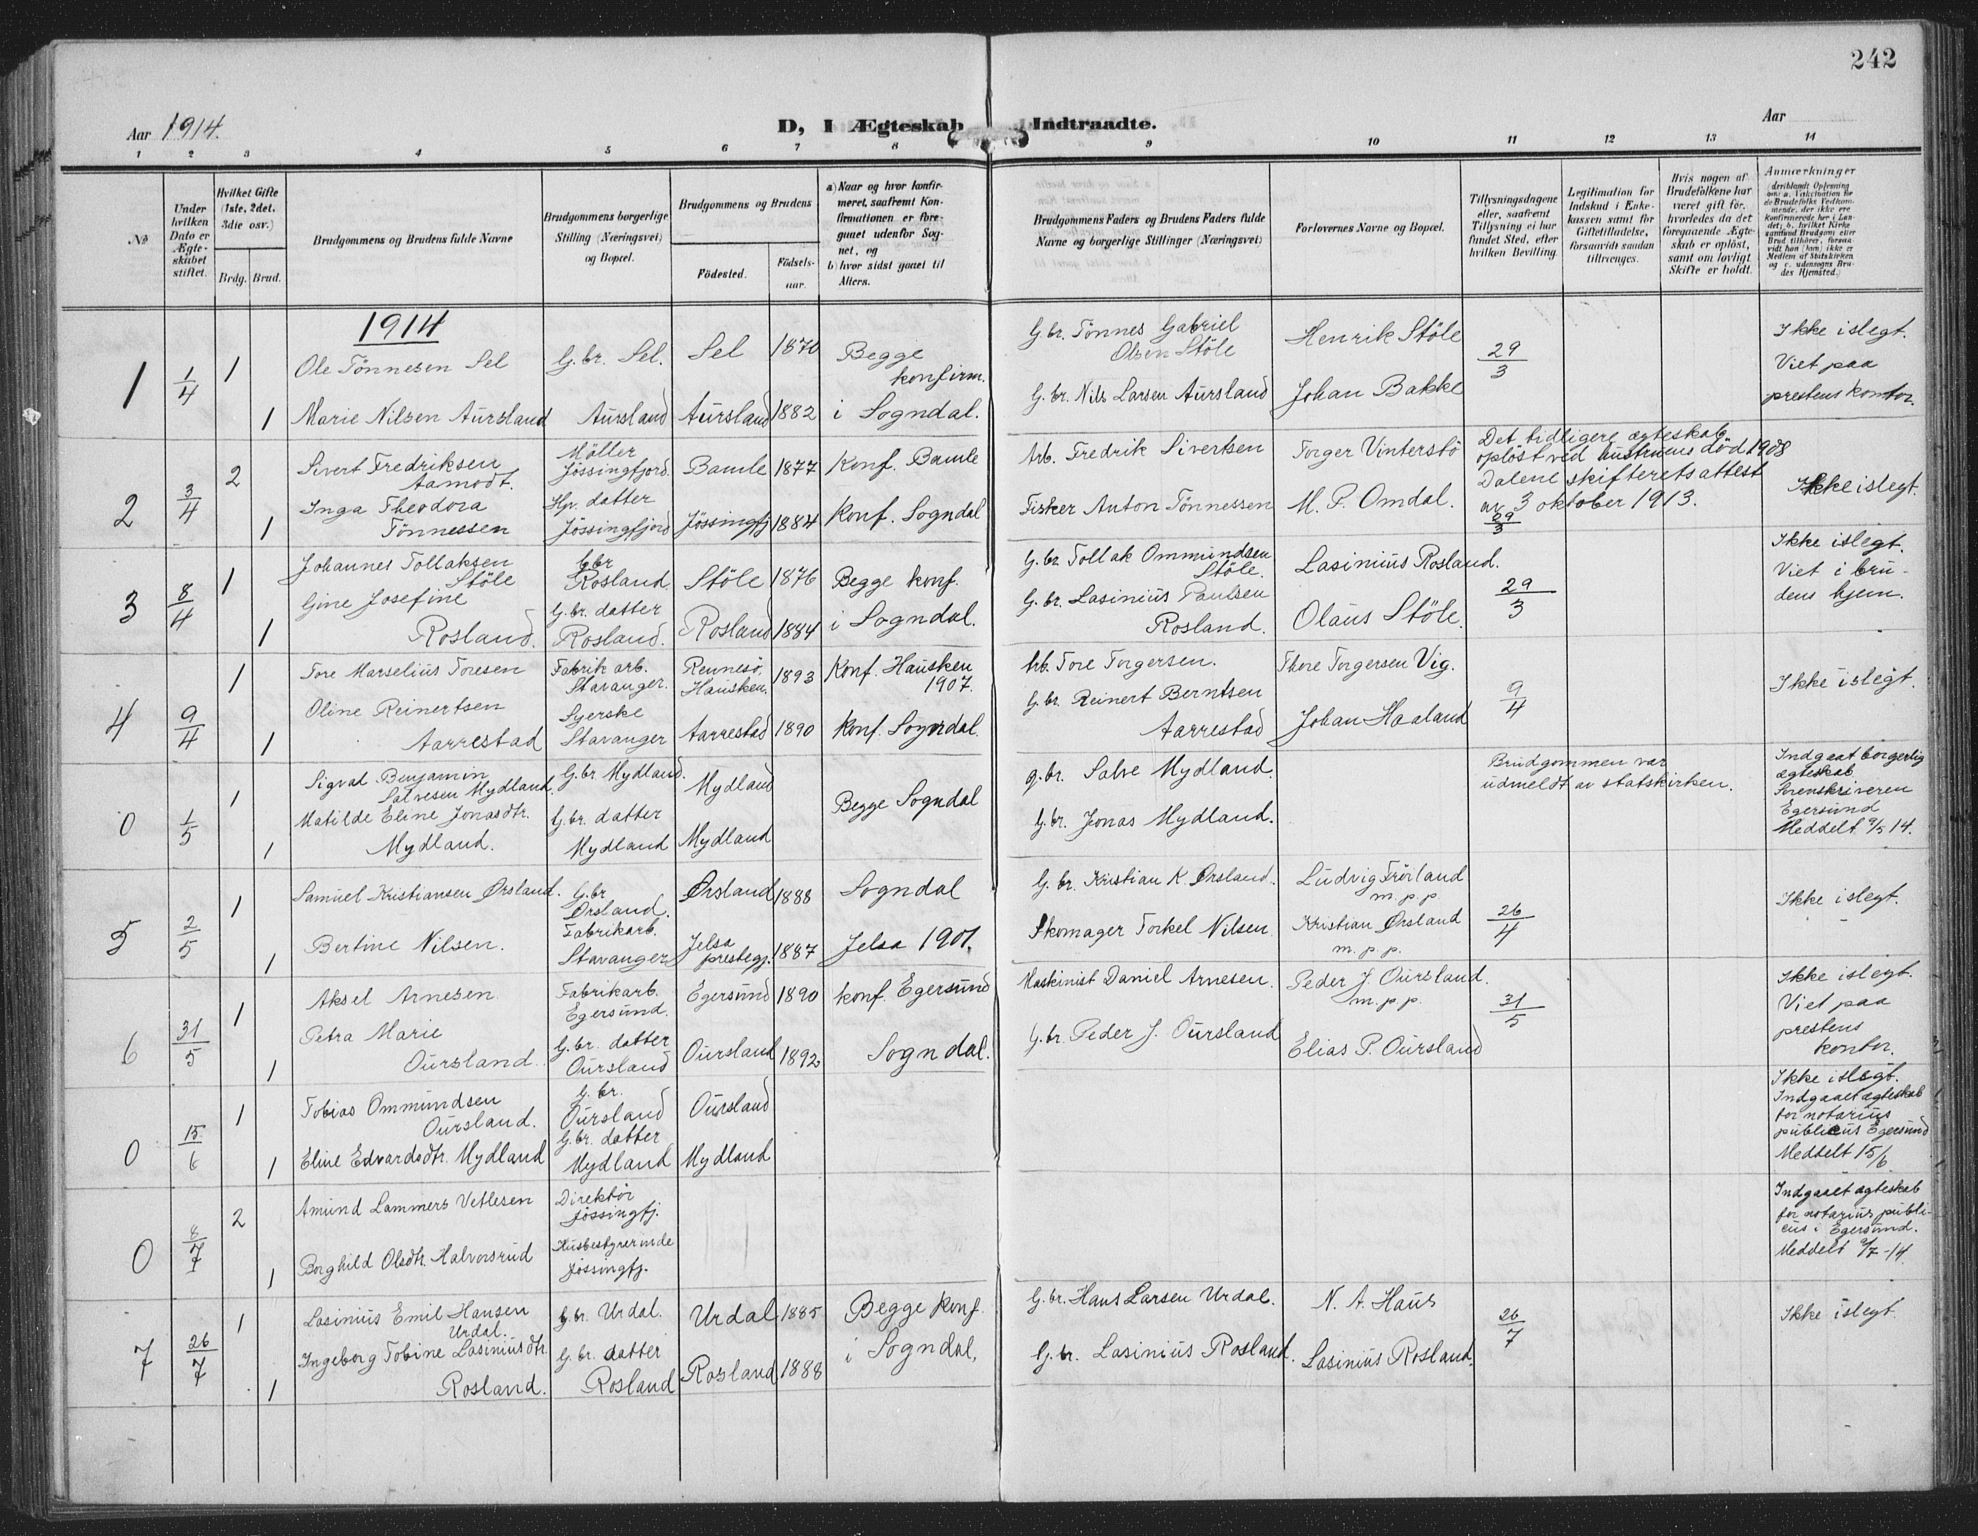 242
Aar 1914.
D, I Ægteskab Indtraadte.
Aar
1 2 3 4 5 6 7 8 9 10 11 12 13 14
No
Under hvilken Dato er Ægteskabet stiftet.
Hvilket Gifte (1ste, 2det, 3die osv.)
Brdg. Brud.
Brudgommens og Brudens fulde Navne
Brudgommens borgerlige Stilling (Næringsvei) og Bopæl.
Brudgommens og Brudens
Födested.
Födselsaar.
a) Naar og hvor konfirmeret, saafremt Konfirmationen er foregaaet udenfor Sognet, og
b) hvor sidst gaaet til Alters.
Brudgommens Faders og Brudens Faders fulde Navne og borgerlige Stillinger (Næringsvei)
Forlovernes Navne og Bopæl.
Tillysningsdagene eller, saafremt Tillysning ei har fundet Sted, efter hvilken Bevilling.
Legitimation for Indskud i Enkekassen samt for Giftetilladelse, forsaavidt saadan tiltrænges.
Hvis nogen af Brudefolkene har været gift för, hvorledes da det foregaaende Ægteskab er oplöst, samt om lovligt Skifte er holdt.
Anmærkninger
1914
1 1/4 1 Ole Tönnesen Sel G.br. Sel. Sel 1870 Begge konfirm.
1 Marie Nilsen Aursland Aursland Aursland 1882 i Sogndal.
G.br. Tönnes Gabriel Olsen Stöle Henrik Stöle 29/3
G.br. Nils Larsen Aursland Johan Bakke
Ikke i slegt.
Viet paa
prestens kontor.
2 3/4 2 Sivert Fredriksen Aamodt. Möller Jössingfjord. Bamle 1877 Konf. Bamle
1 Inga Theodora Tönnessen Hp. datter Jössingfjord Jössingfj. 1884 Konf. Sogndal
Arb. Fredrik Sivertsen Torger Vinterstö
Fisker Anton Tönnessen M. P. Omdal.
Det tidligere ægteskab
oplöst ved hustruens död 1908
Dalene skifteretsattest
av 3 oktober 1913.
29/3
Ikke i slegt.
3 8/4 1 Johannes Tollaksen Stöle G.br Rosland Stöle 1876 Begge konf.
1 Gine Josefine Rosland. G.br. datter Rosland. Rosland 1884 i Sogndal.
G.br. Tollak Ommundsen Stöle. Lasinius Rosland.
G.br. Lasinius Paulsen Rosland. Olaus Stöle. 29/3
Ikke i slegt.
Viet i bru-
dens hjem.
4 9/4 1 Tore Marselius Toresen Fabrik arb. Stavanger. Rennesö, Hausken. 1893 Konf. Hausken 1907.
1 Oline Reinertsen Aarrestad Syerske Stavanger Aarrestad 1890 konf. Sogndal.
Arb. Tore Torgersen. Thore Torgersen Vig.
G.br. Reinert Berntsen Aarrestad Johan Haaland 9/4
Ikke i slegt.
0 1/5 1 Sigvad Benjamin Salvesen Mydland. G.br Mydland. Mydland Begge Sogndal
1 Matilde Eline Jonasdtr. Mydland. G.br. datter Mydland Mydland
g.br. Salve Mydland.
G.br. Jonas Mydland.
Brudgommen var
udmeldt av statskirken.
Indgaat borgerlig
ægteskab
Sorenskriveren
Egersund
Meddelt 9/5 14.
5 2/5 1 Samuel Kristiansen Ørsland. G.br Ørsland. Ørsland 1888 Sogndal
1 Bertine Nilsen. Fabrikarb. Stavanger Jelsa prestegj. 1887 Jelsa 1901.
G.br. Kristian K. Ørsland. Ludvig Fröiland m.p.p
Skomager Torkel Nilsen Kristian Ørsland m.p.p. 26/4
Ikke i slegt.
6 31/5 1 Aksel Arnesen Fabrikarb. Egersund. Egersund 1890 konf. Egersund
1 Petra Marie Oursland G.br. datter Oursland Oursland 1892 Sogndal.
Maskinist Daniel Arnesen. Peder J. Oursland. m.p.p.
G.br. Peder J. Oursland Elias P. Oursland 31/5
Ikke i slegt.
Viet paa
prestens
kontor.
0 15/6 1 Tobias Ommundsen Oursland. G.br. Oursland Oursland
1 Eline Edvardsdtr. Mydland G.br. datter Mydland Mydland
Ikke i slegt.
Indgaaet ægteskab
for notarius
publicus Egersund
Meddelt 15/6
0 8/7 2 Amund Lammers Vetlesen Direktör Jössingfj.
1 Borghild Olsdtr. Halvorsrud Husbestyrerinde Jössingfj.
Indgaaet ægteskab
for notarius publi-
cus i Egersund.
Meddelt 9/7-14
7 26/7 1 Lasinius Emil Hansen Urdal. G.br. Urdal. Urdal 1885 Begge konf.
1 Ingeborg Tobine Lasiniusdtr. Rosland. G.br. datter Rosland Rosland 1888 i Sogndal,
G.br. Hans Larsen Urdal. N. A. Haus
G.br. Lasinius Rosland. Lasinius Rosland. 26/7
Ikke i slegt